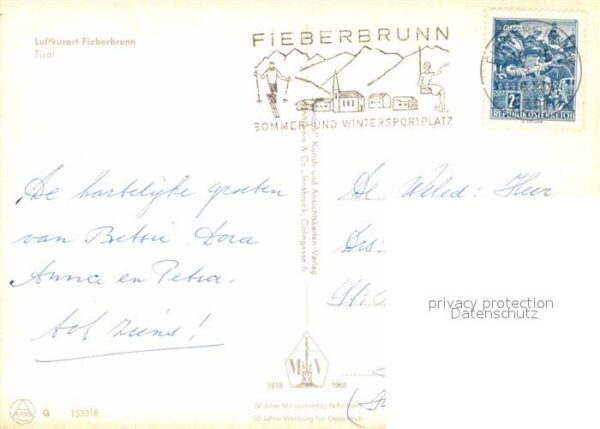 Luftkurort Fieberbrunn
Tirol
FIEBERBRUNN
SOMMER- UND WINTERSPORTPLATZ
REPUBLIK ÖSTERREICH
De hartelijke groeten
van Bettie Dora
Anna en Petra.
tot ziens!
Kunst- und Ansichtskarten-Verlag
& Co., Innsbruck, Colingasse 6
De Weled: Heer
Drs:
privacy protection
Datenschutz
M V
1918 1968
50 Jahre Monopolverlag
50 Jahre Werbung für Österreich
G 153016